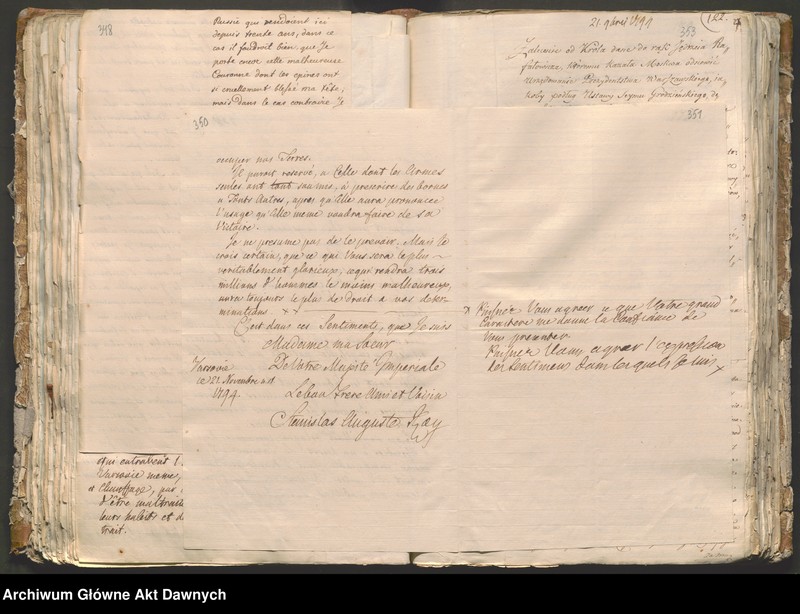 348
Russie qui rendoient ici
depuis trente ans, dans ce
cas il faudroit bien, que Je
porte encor cette malheureuse
Couronne dont les epines ont
si cruellement blessé ma tête,
mais dans le cas contraire Je
21. 9bris 1794
122.
353
Zalecenie od Króla dane do rąk Jędrzeja Ra-
fałowicza, któremu kazała Moskwa odnowić
urzędowanie Prezydentstwa Warszawskiego, ja-
koby podług Ustawy Seymu Grodzińskiego, d
350
occuper nos Terres.
Il paroit reservé, a Celle dont les Armes
seules ont tout soumis, à prescrire des bornes
a Touts Autres, apres qu'Elle aura prononcée
l'usage qu'Elle meme voudra faire de sa
Victoire.
Je ne presume pas de le prevoir. Mais Je
crois certain, que ce qui Vous sera le plus
veritablement glorieux, ce qui rendra trois
millions d'hommes le moins malheureux,
aura toujours le plus de droit a vos deter-
minations.
C'est dans ces Sentiments, que Je suis
Madame ma Soeur
De Votre Majesté Imperiale
Varsovie
ce 21. Novembre
1794.
Le bon Frere Ami et Voisin
Stanislas Auguste Roy
351
Puisse Vous agreer ce que Votre grand
Caractere me donne la Confiance de
Vous presenter
Puisse Vous agreer l'expression
des Sentimens dans lesquels Je suis
qui entrabent l
Varsovie meme,
Chauffage, par
d'être maltraité
leurs habits et d
trait.
Archiwum Główne Akt Dawnych